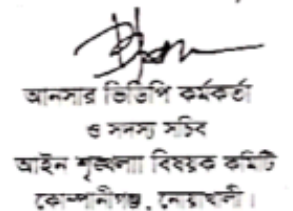 আনসার ভিডিপি কর্মকর্তা
ও সদস্য সচিব
আইন শৃঙ্খলা বিষয়ক কমিটি
কোম্পানীগঞ্জ, নোয়াখালী।